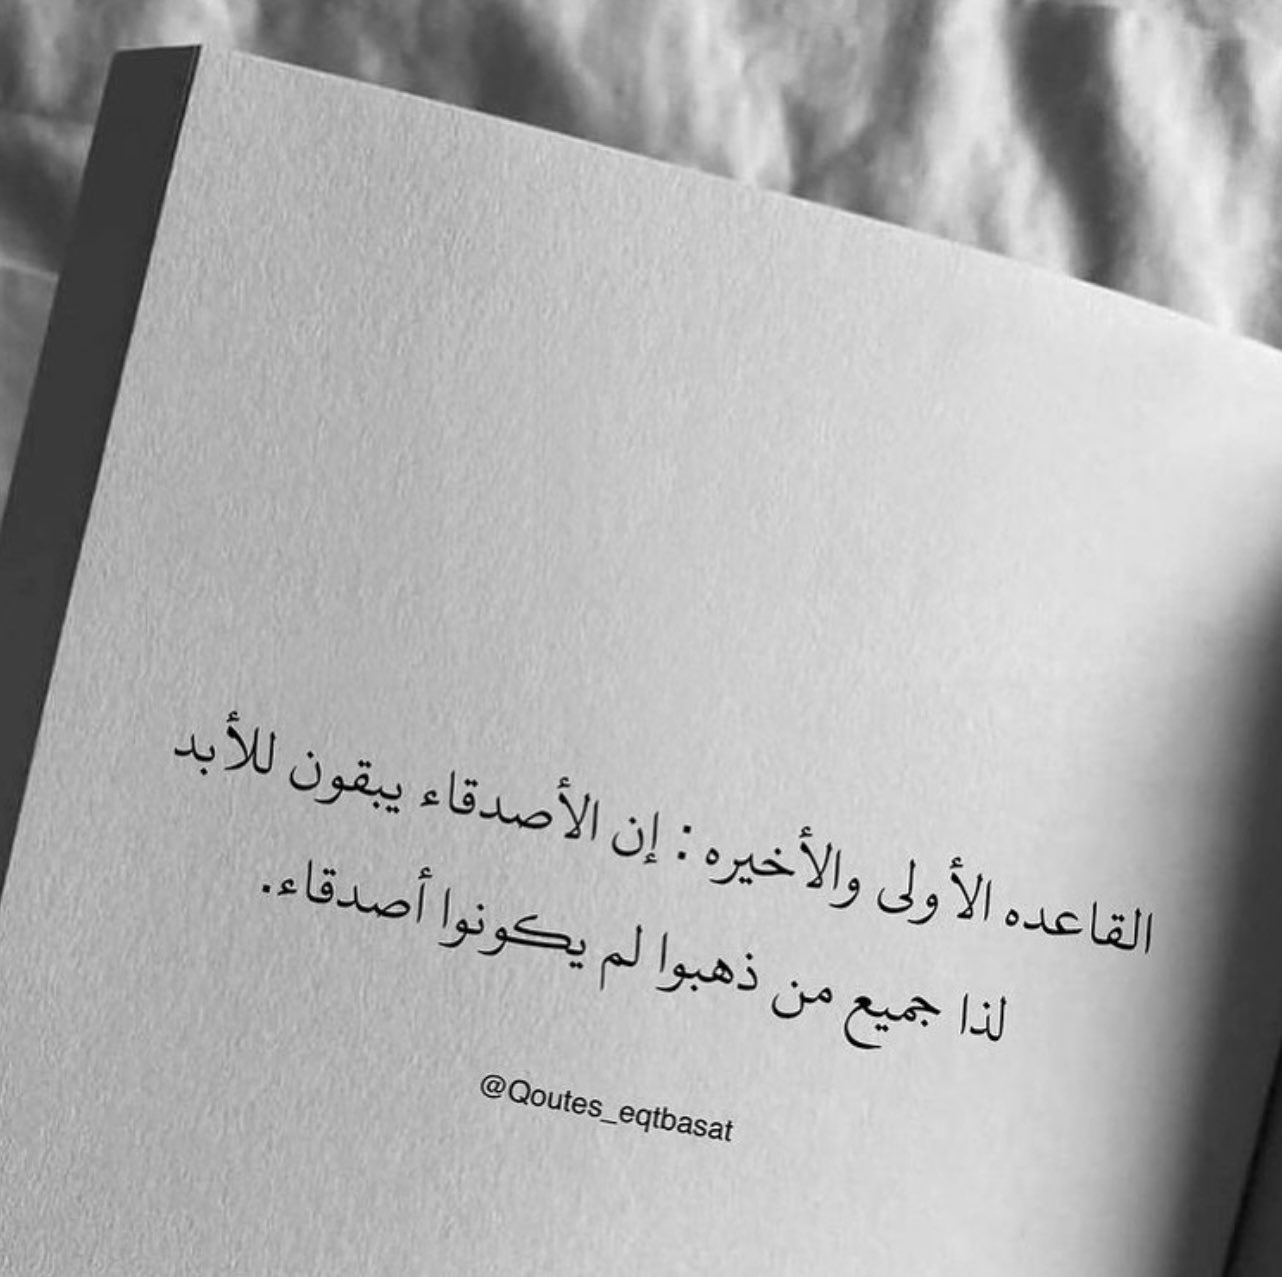 القاعده الأولى والأخيره : إن الأصدقاء يبقون للأبد
لذا جميع من ذهبوا لم يكونوا أصدقاء.
@Qoutes_eqtbasat